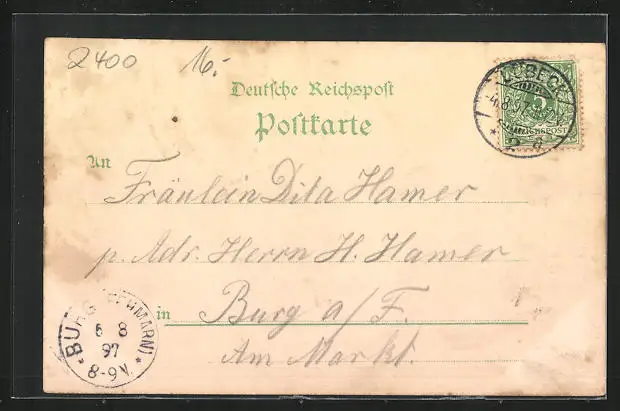 2400 16.-
Deutsche Reichspost
Postkarte
LÜBECK
REICHSPOST
An
Fräulein Dita Hamer
p. Adr. Herrn H. Hamer
in Burg a/F.
Am Markt.
BURG (FEHMARN)
6 8
97
8-9V.